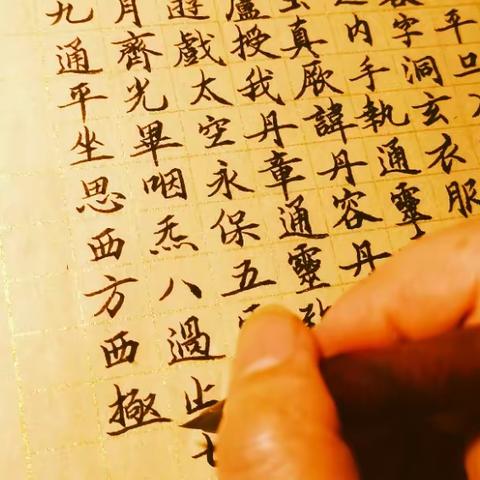 平口
字洞玄衣服
內手執通靈
真厥諱丹容丹
盧授我丹章通靈
遊戲太空永保五
月齊光畢咽炁八過止
九通平坐思西方西極